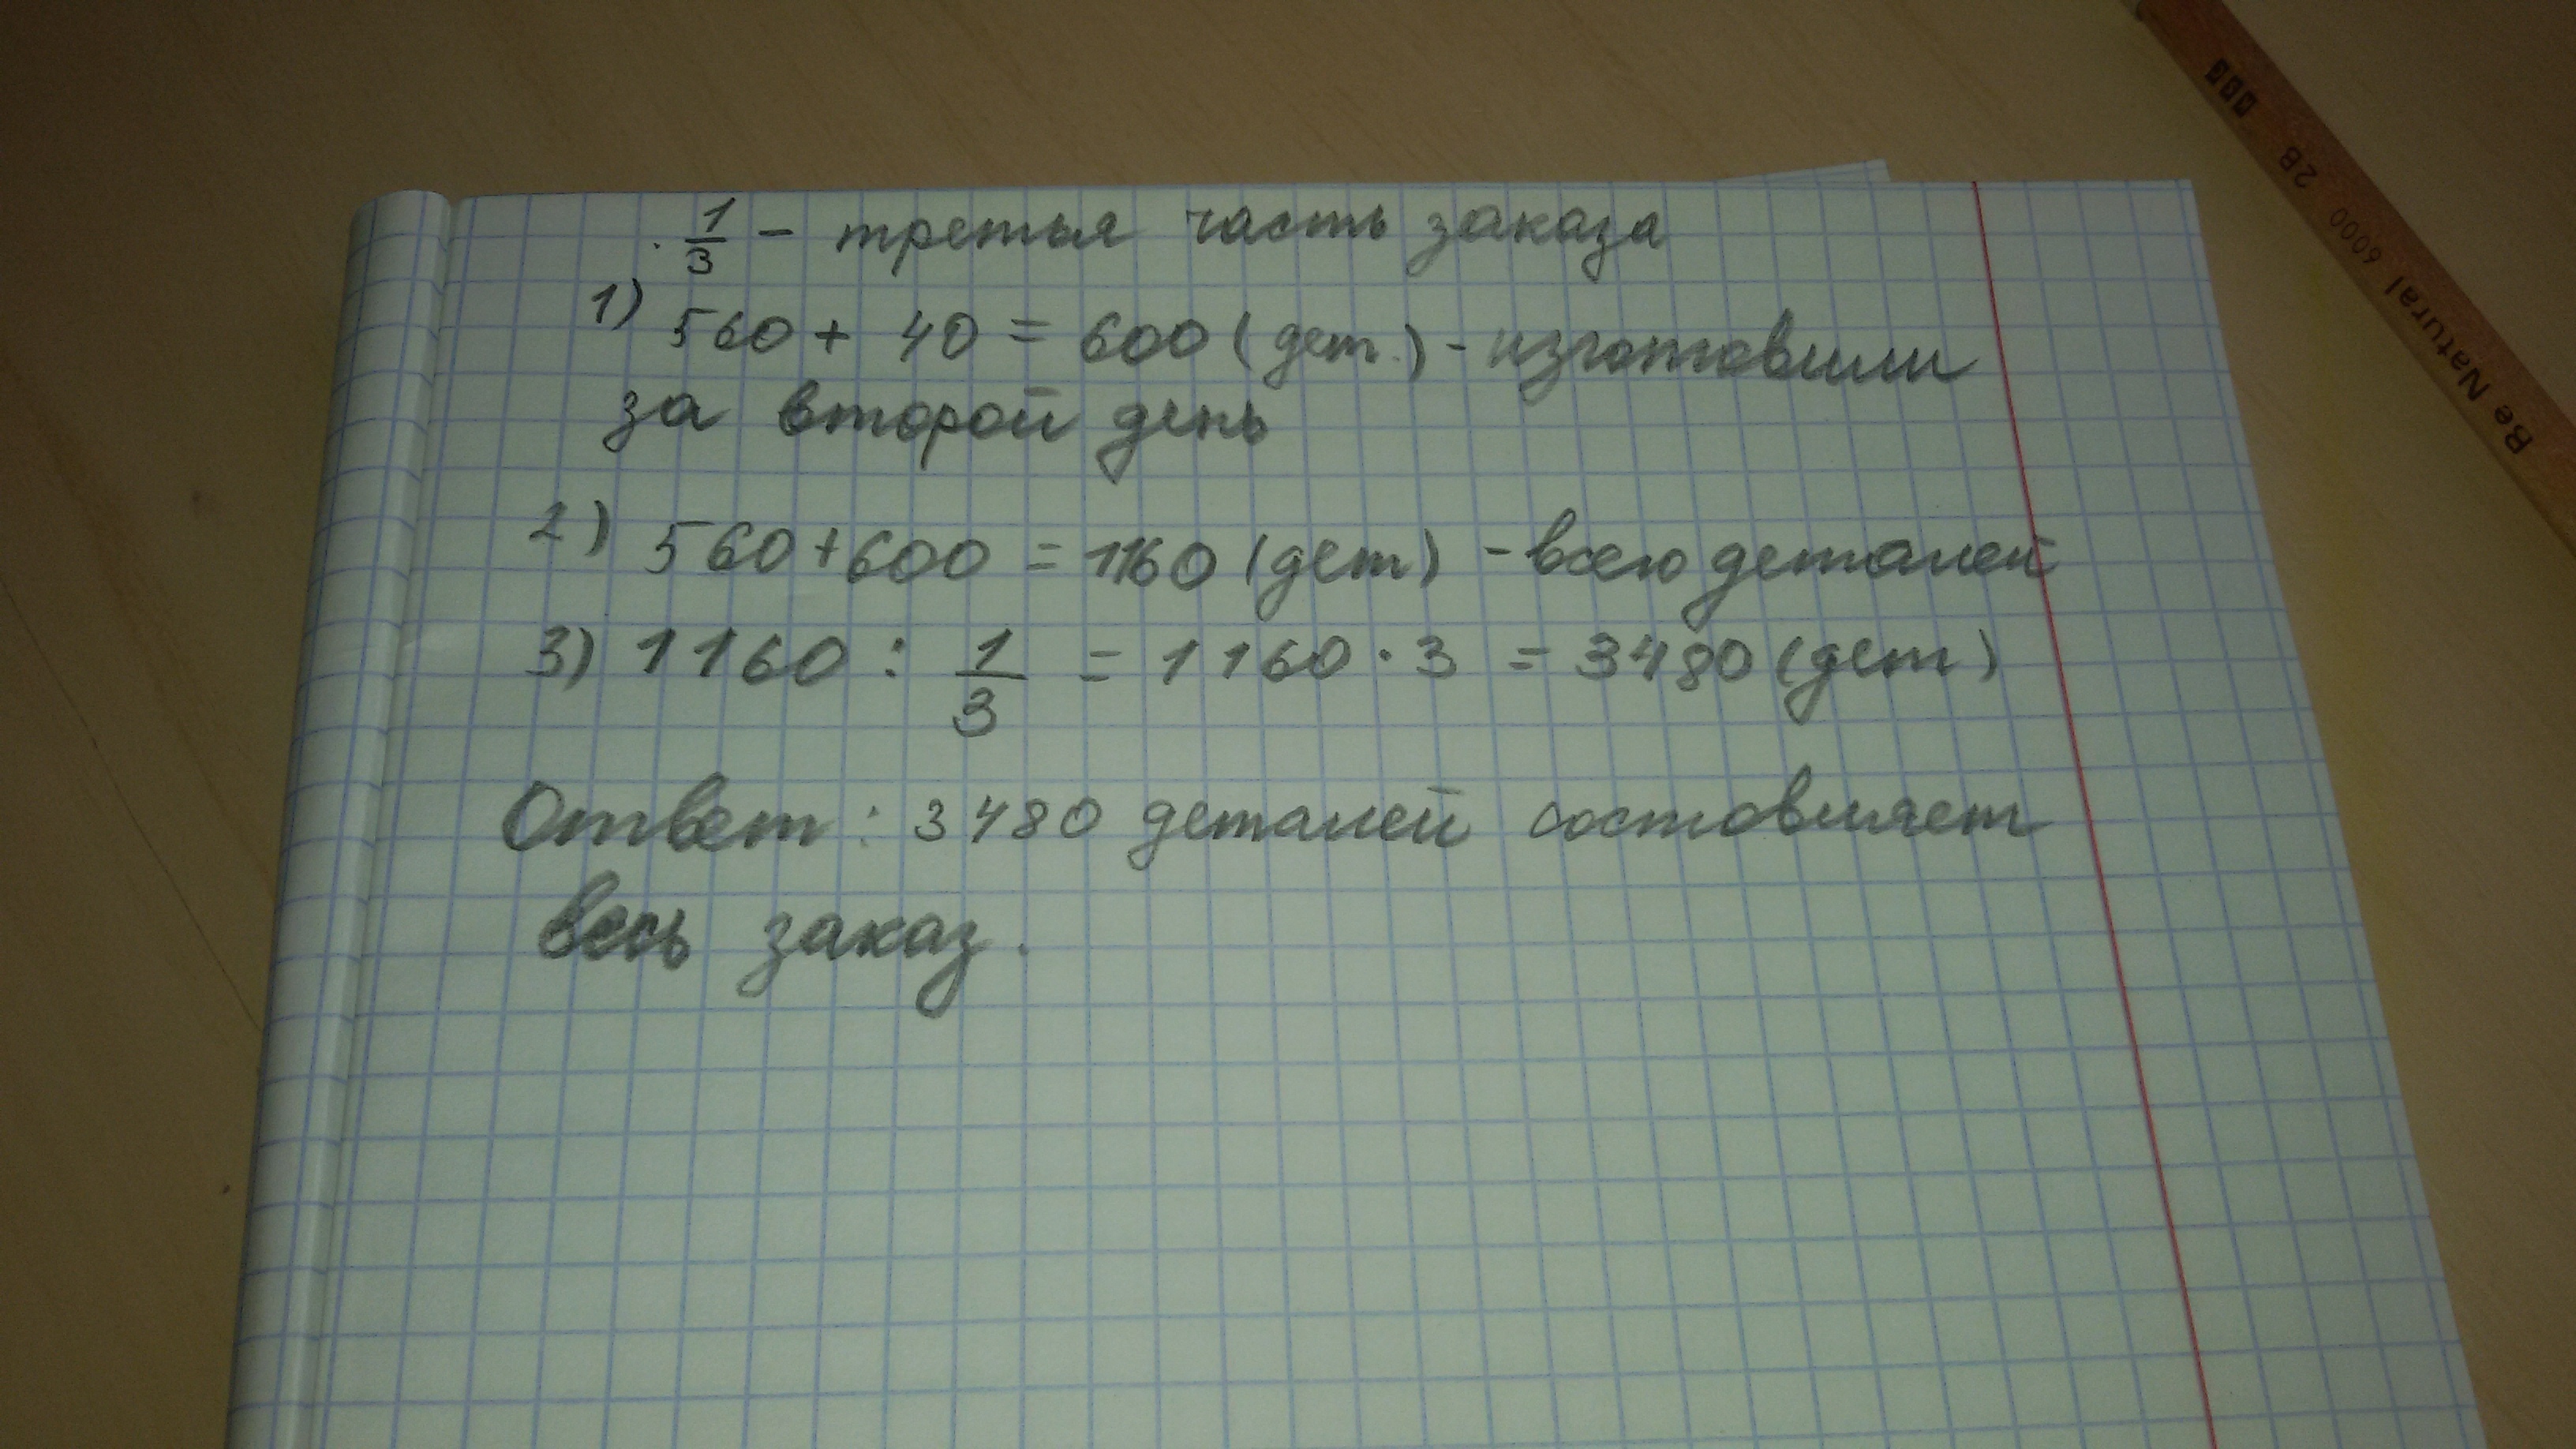 1/3 - третья часть заказа
1) 560 + 40 = 600 (дет.) - изготовили
за второй день
2) 560 + 600 = 1160 (дет) - всего деталей
3) 1160 : 1/3 = 1160 · 3 = 3480 (дет)
Ответ: 3480 деталей составляет
весь заказ.
Be Natural 60000 2B